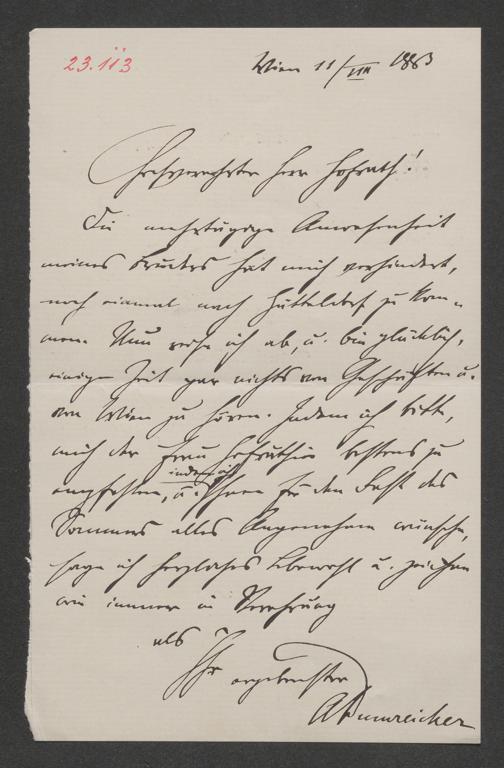 23.113
Wien 11/VIII 1883
Hochverehrter Herr Hofrath!
Die mehrtägige Anwesenheit
meines Bruders hat mich verhindert,
noch einmal nach Hütteldorf zu kom-
men. Nun reise ich ab, u. bin glücklich,
einige Zeit gar nichts von Geschäften u.
von Wien zu hören. Indem ich bitte,
mich der Frau Hofräthin bestens zu
empfehlen, u. indem ich Ihnen für den Rest des
Sommers alles Angenehme wünsche,
sage ich herzliches Lebewohl u. zeichne
wie immer in Verehrung
als
Ihr ergebenster
ADumreicher